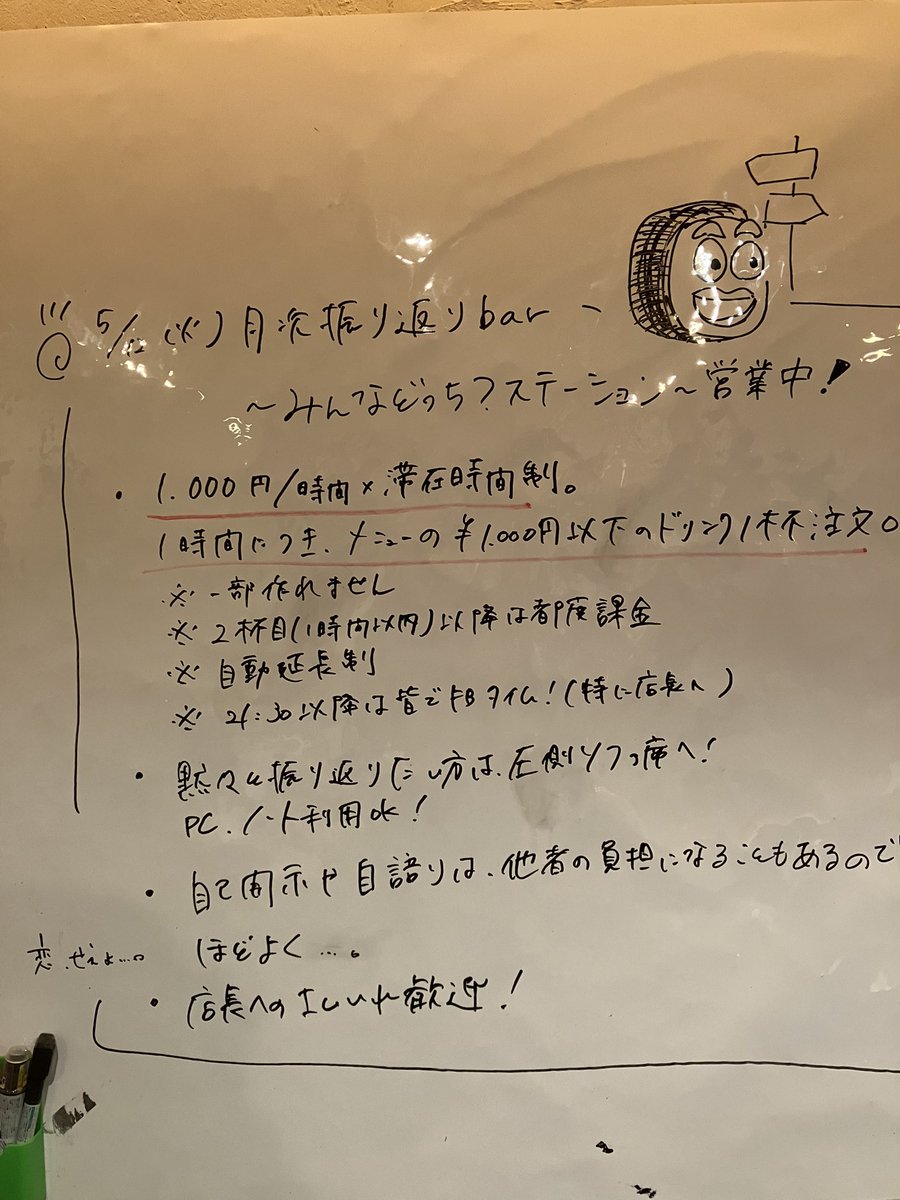 5/12(火)月次振り返りbar
～みんなどっち?ステーション～営業中!
・1.000円/時間×滞在時間制。
1時間につき、メニューの¥1.000円以下のドリンク1杯注文
※一部作れません
※2杯目(1時間以内)以降は都度課金
※自動延長制
※21:30以降は皆でFBタイム!(特に店長へ)
・黙々と振り返りたい方は、左側ソファ席へ!
PC、ノート利用ok!
・自己開示や自語りは、他者の負担になることもあるので
ほどよく…。
恋、ぜぇよ…。
・店長へのさしいれ歓迎!